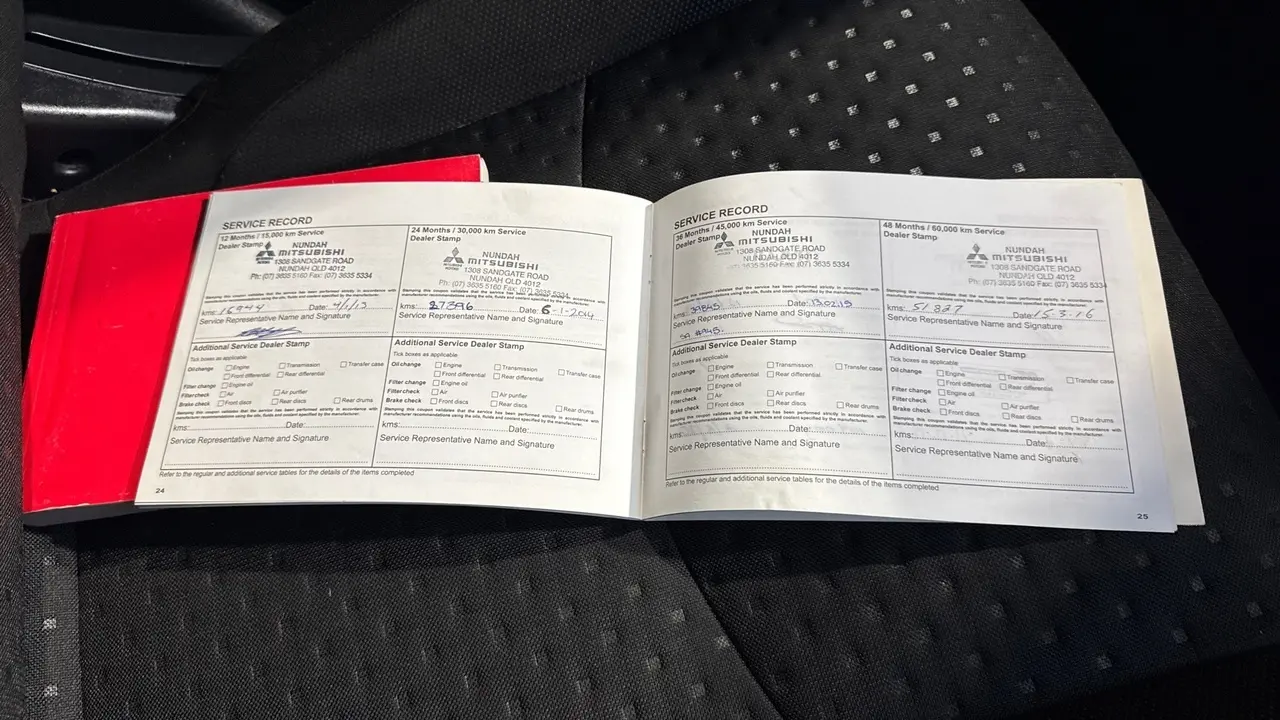 SERVICE RECORD
12 Months / 15,000 km Service
Dealer Stamp
NUNDAH
MITSUBISHI
1308 SANDGATE ROAD
NUNDAH QLD 4012
Ph: (07) 3635 5160 Fax: (07) 3635 5334
Stamping this coupon validates that the service has been performed strictly in accordance with
manufacturer recommendations using the oils, fluids and coolant specified by the manufacturer.
kms: Date:
Service Representative Name and Signature
Additional Service Dealer Stamp
Tick boxes as applicable
Oil change Engine Transmission Transfer case
Front differential Rear differential
Filter change Engine oil
Filter check Air Air purifier
Brake check Front discs Rear discs Rear drums
Stamping this coupon validates that the service has been performed strictly in accordance with
manufacturer recommendations using the oils, fluids and coolant specified by the manufacturer.
kms: Date:
Service Representative Name and Signature
24 Months / 30,000 km Service
Dealer Stamp
NUNDAH
MITSUBISHI
1308 SANDGATE ROAD
NUNDAH QLD 4012
Ph: (07) 3635 5160 Fax: (07) 3635 5334
Stamping this coupon validates that the service has been performed strictly in accordance with
manufacturer recommendations using the oils, fluids and coolant specified by the manufacturer.
kms: 27396 Date: 6-1-2014
Service Representative Name and Signature
Additional Service Dealer Stamp
Tick boxes as applicable
Oil change Engine Transmission Transfer case
Front differential Rear differential
Filter change Engine oil
Filter check Air Air purifier
Brake check Front discs Rear discs Rear drums
Stamping this coupon validates that the service has been performed strictly in accordance with
manufacturer recommendations using the oils, fluids and coolant specified by the manufacturer.
kms: Date:
Service Representative Name and Signature
Refer to the regular and additional service tables for the details of the items completed
24
SERVICE RECORD
36 Months / 45,000 km Service
Dealer Stamp
NUNDAH
MITSUBISHI
1308 SANDGATE ROAD
NUNDAH QLD 4012
3635 5160 Fax: (07) 3635 5334
Stamping this coupon validates that the service has been performed strictly in accordance with
manufacturer recommendations using the oils, fluids and coolant specified by the manufacturer.
kms: Date:
Service Representative Name and Signature
Additional Service Dealer Stamp
Tick boxes as applicable
Oil change Engine Transmission Transfer case
Front differential Rear differential
Filter change Engine oil
Filter check Air Air purifier
Brake check Front discs Rear discs Rear drums
Stamping this coupon validates that the service has been performed strictly in accordance with
manufacturer recommendations using the oils, fluids and coolant specified by the manufacturer.
kms: Date:
Service Representative Name and Signature
48 Months / 60,000 km Service
Dealer Stamp
NUNDAH
MITSUBISHI
1308 SANDGATE ROAD
NUNDAH QLD 4012
Ph: (07) 3635 5160 Fax: (07) 3635 5334
Stamping this coupon validates that the service has been performed strictly in accordance with
manufacturer recommendations using the oils, fluids and coolant specified by the manufacturer.
kms: 51827 Date: 15-3-16
Service Representative Name and Signature
Additional Service Dealer Stamp
Tick boxes as applicable
Oil change Engine Transmission Transfer case
Front differential Rear differential
Filter change Engine oil
Filter check Air Air purifier
Brake check Front discs Rear discs Rear drums
Stamping this coupon validates that the service has been performed strictly in accordance with
manufacturer recommendations using the oils, fluids and coolant specified by the manufacturer.
kms: Date:
Service Representative Name and Signature
Refer to the regular and additional service tables for the details of the items completed
25